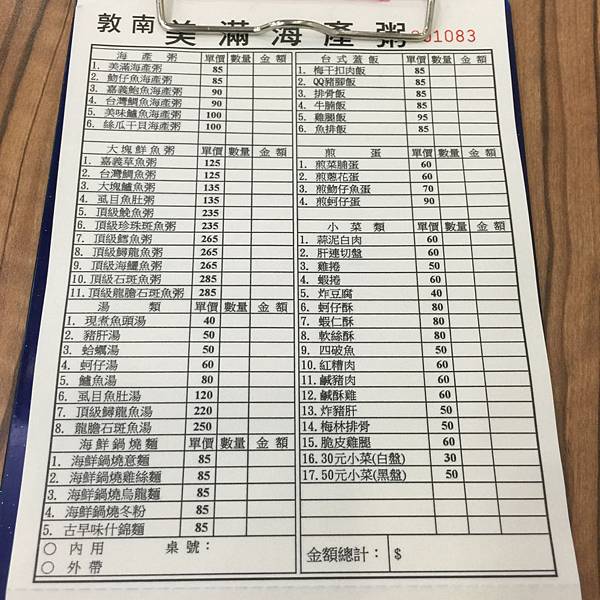 敦南 美滿海產粥
海產粥 單價 數量 金額
1. 美滿海產粥 85
2. 魩仔魚海產粥 85
3. 嘉義鮑魚海產粥 90
4. 台灣鯛魚海產粥 90
5. 美味鱸魚海產粥 100
6. 絲瓜干貝海產粥 100
大塊鮮魚粥 單價 數量 金額
1. 嘉義草魚粥 125
2. 台灣鯛魚粥 125
3. 大塊鱸魚粥 135
4. 虱目魚肚粥 135
5. 頂級鮸魚粥 235
6. 頂級珍珠斑魚粥 235
7. 頂級鱈魚粥 265
8. 頂級鱘龍魚粥 265
9. 頂級海鱺魚粥 265
10. 頂級石斑魚粥 285
11. 頂級龍膽石斑魚粥 285
湯類 單價 數量 金額
1. 現煮魚頭湯 40
2. 豬肝湯 50
3. 蛤蠣湯 50
4. 蚵仔湯 60
5. 鱸魚湯 80
6. 虱目魚肚湯 120
7. 頂級鱘龍魚湯 220
8. 龍膽石斑魚湯 250
海鮮鍋燒麵 單價 數量 金額
1. 海鮮鍋燒意麵 85
2. 海鮮鍋燒雞絲麵 85
3. 海鮮鍋燒烏龍麵 85
4. 海鮮鍋燒冬粉 85
5. 古早味什錦麵 85
○ 內用 桌號：
○ 外帶
台式蓋飯 單價 數量 金額
1. 梅干扣肉飯 85
2. QQ豬腳飯 85
3. 排骨飯 85
4. 牛腩飯 85
5. 雞腿飯 95
6. 魚排飯 85
煎蛋 單價 數量 金額
1. 煎菜脯蛋 60
2. 煎蔥花蛋 60
3. 煎魩仔魚蛋 70
4. 煎蚵仔蛋 90
小菜類 單價 數量 金額
1. 蒜泥白肉 60
2. 肝連切盤 60
3. 雞捲 50
4. 蝦捲 60
5. 炸豆腐 40
6. 蚵仔酥 80
7. 蝦仁酥 80
8. 軟絲酥 80
9. 四破魚 50
10. 紅糟肉 60
11. 鹹豬肉 60
12. 鹹酥雞 60
13. 炸豬肝 50
14. 梅林排骨 50
15. 脆皮雞腿 60
16. 30元小菜(白盤) 30
17. 50元小菜(黑盤) 50
金額總計： $